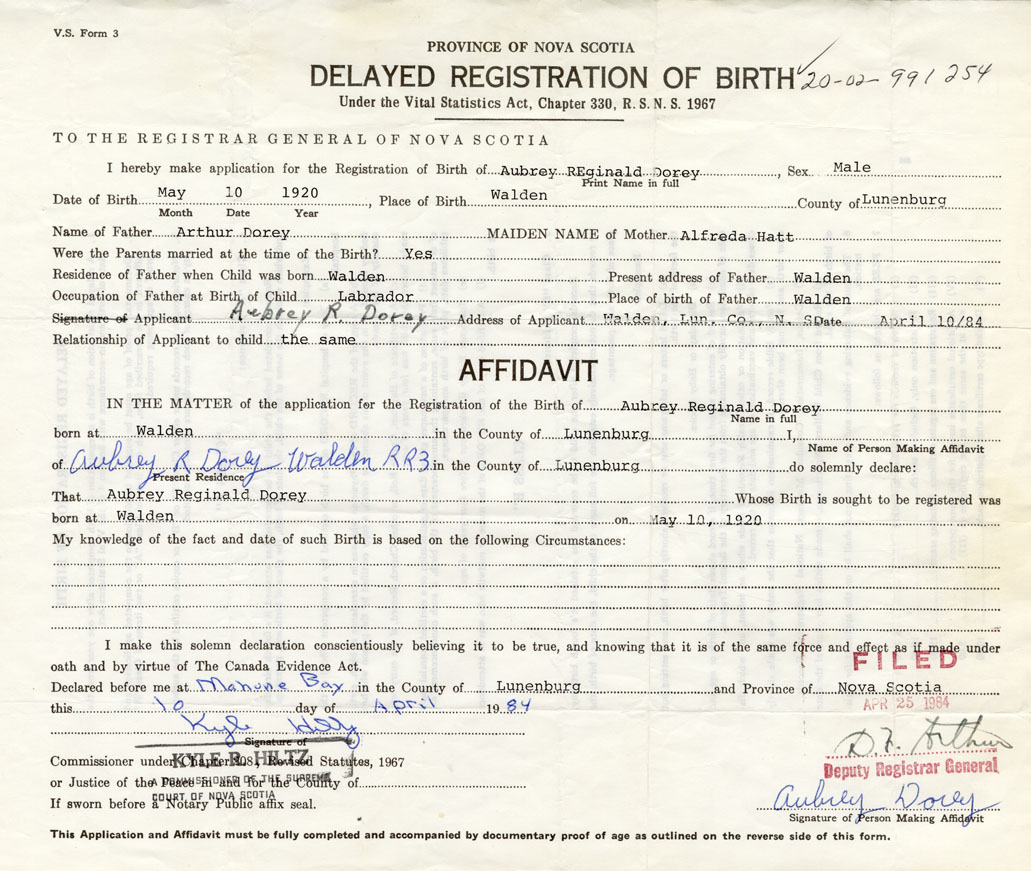 V.S. Form 3
PROVINCE OF NOVA SCOTIA
DELAYED REGISTRATION OF BIRTH 20-02-991254
Under the Vital Statistics Act, Chapter 330, R. S. N. S. 1967
TO THE REGISTRAR GENERAL OF NOVA SCOTIA
I hereby make application for the Registration of Birth of Aubrey REginald Dorey, Sex Male
Print Name in full
Date of Birth May 10 1920, Place of Birth Walden County of Lunenburg
Month Date Year
Name of Father Arthur Dorey MAIDEN NAME of Mother Alfreda Hatt
Were the Parents married at the time of the Birth? Yes
Residence of Father when Child was born Walden Present address of Father Walden
Occupation of Father at Birth of Child Labrador Place of birth of Father Walden
Signature of Applicant Aubrey R. Dorey Address of Applicant Walden, Lun. Co., N. S Date April 10/84
Relationship of Applicant to child the same
AFFIDAVIT
IN THE MATTER of the application for the Registration of the Birth of Aubrey Reginald Dorey
Name in full
born at Walden in the County of Lunenburg I,
Name of Person Making Affidavit
of Aubrey R Dorey Walden RR3 in the County of Lunenburg do solemnly declare:
Present Residence
That Aubrey Reginald Dorey Whose Birth is sought to be registered was
born at Walden on May 10, 1920
My knowledge of the fact and date of such Birth is based on the following Circumstances:
I make this solemn declaration conscientiously believing it to be true, and knowing that it is of the same force and effect as if made under
oath and by virtue of The Canada Evidence Act.
FILED
Declared before me at Mahone Bay in the County of Lunenburg and Province of Nova Scotia
APR 25 1984
this 10 day of April 19 84
Kyle Hiltz
Signature of
D.F. Arthur
Deputy Registrar General
Commissioner under Chapter 308, Revised Statutes, 1967
KYLE R. HILTZ
or Justice of the Peace in and for the County of
A COMMISSIONER OF THE SUPREME
COURT OF NOVA SCOTIA
If sworn before a Notary Public affix seal.
Aubrey Dorey
Signature of Person Making Affidavit
This Application and Affidavit must be fully completed and accompanied by documentary proof of age as outlined on the reverse side of this form.